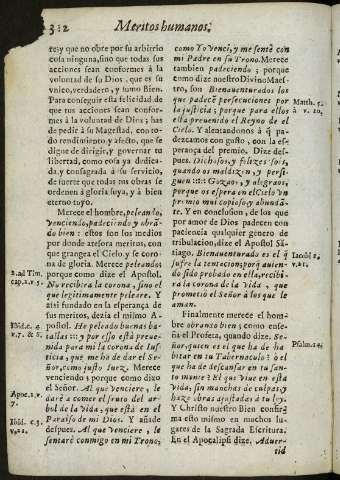 312
Meritos humanos.
res, y que no obre por su arbitrio
cosa ninguna, sino que todas sus
acciones sean conformes à la
voluntad de su Dios, que es su
vnico, verdadero, y sumo Bien.
Para conseguir esta felicidad de
que tus acciones sean conformes
à la voluntad de Dios; has
de pedir à su Magestad, con to-
do rendimiento, y afecto, que se
digne de dirigir, y governar tu
libertad, como cosa ya dedica-
da, y consagrada à su servicio,
de suerte que todas tus obras se
ordenen à gloria suya, y à bien
eterno tuyo.
Merece el hombre, peleando,
venciendo, padeciendo, y obran-
do bien: estos son los medios
por donde atesora meritos, con
que grangea el Cielo, y se coro-
na de gloria. Merece peleando;
porque como dize el Apostol.
No recibira la corona, sino el
que legitimamente peleare. Y
assi fundado en la esperança de
sus meritos, dezia el mismo A-
postol. He peleado buenas ba-
tallas::: y por esso està preve-
nida para mi la corona de Jus-
ticia, que me ha de dar el Se-
ñor, como justo Juez. Merece
venciendo; porque como dize
el Señor. Al que venciere, le
darè a comer el fruto del ar-
bol de la Vida, que està en el
Paraiso de mi Dios. Y añade
despues. Al que venciere, le
sentarè conmigo en mi Trono;
2. ad Tim.
cap. 2. v. 5.
Ibid. c. 4.
v. 7. & 8.
Apoc. 2. v.
7.
Ibid. c. 3.
v. 21.
como Yo vencì, y me sentè con
mi Padre en su Trono. Merece
tambien padeciendo; porque
como dize nuestro Divino Maes-
tro, son Bienaventurados los
que padecẽ persecuciones por
la justicia; porque para ellos
està prevenido el Reyno de el
Cielo. Y alentandonos à q̃ pa-
dezcamos con gusto, con la es-
perança del premio. Dize des-
pues. Dichosos, y felizes sois,
quando os maldizen, y persi-
guen::: Gozaos, y alegraos,
porque os espera en el Cielo vn
premio muy copioso, y abundã-
te. Y en conclusion, de los que
por amor de Dios padecen con
paciencia qualquier genero de
tribulacion, dize el Apostol Sã-
tiago. Bienaventurado es el q̃
sufre la tentacion; porq̃ avien-
do sido probado en ella, recibi-
rà la corona de la vida, que
prometiò el Señor à los que le
aman.
Finalmente merece el hom-
bre obrando bien; como ense-
ña el Profeta, quando dize. Se-
ñor, quien es el que ha de ha-
bitar en tu Tabernaculo? ò el
que ha de descansar en tu san-
to monte? El que vive en esta
vida, sin manchas de culpas, y
haze obras ajustadas à tu ley.
Y Christo nuestro Bien confir-
ma esto mismo en muchos lu-
gares de la Sagrada Escritura.
En el Apocalipsi dize. Adver-
tid
Matth. 5.
à v. 10.
Iacob. 1.
v. 12.
Psalm. 14.